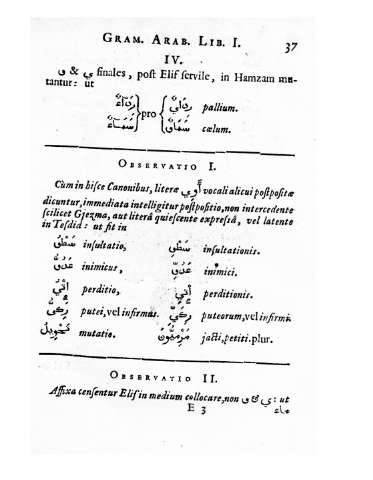 GRAM. ARAB. LIB. I. 37
IV.
و & ي finales, post Elif servile, in Hamzam mu-
tantur: ut
رِدَآءٌ pro رِدَايٌ pallium.
سَمَآءٌ سَمَاوٌ cælum.
OBSERVATIO I.
Cùm in hisce Canonibus, literæ أوي vocali alicui postpositæ
dicuntur, immediata intelligitur postpositio, non intercedente
scilicet Gjezma, aut literâ quiescente expressâ, vel latente
in Tesdid: ut fit in
سَطْوٌ insultatio, سَطْوٍ insultationis.
عَدُوٌّ inimicus, عَدُوٍّ inimici.
perditio, perditionis.
putei, vel infirmus. puteorum, vel infirmi.
تَحْوِيلٌ mutatio. مَرْمِيُّونَ jacti, petiti. plur.
OBSERVATIO II.
Affixa censentur Elif in medium collocare, non و & ي: ut
E 3